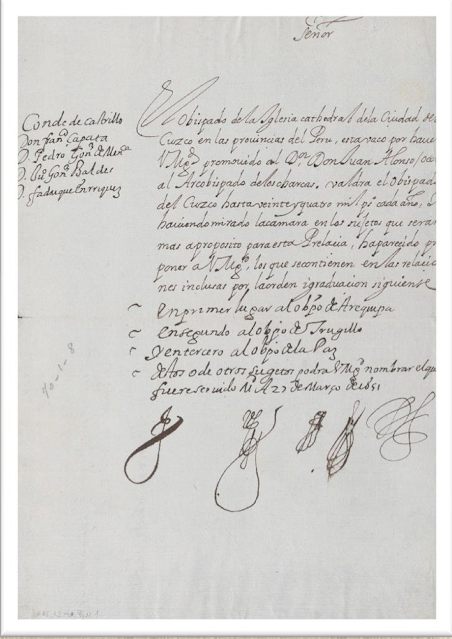 Señor
Conde de castrillo
Don fran.co Çapata
D. Pedro Gon.z de Men.a
D. Gon.z Baldes
D. fadrique enrriquez
El obispado de la Iglesia cathedral de la Ciudad de
Cuzco en las provincias del Peru, esta vaco por haver
V Mg.d promovido al D.or Don Juan Alonso
al Arcobispado de los charcas. valdra el obispado
del Cuzco hasta veinte y quatro mil p.s cada año,
haviendo mirado la camara en los sujetos que seran
mas a proposito para esta Prelacia, ha parecido pro
poner a V Mg.d, los que se contienen en las relacio
nes inclusas por la orden i graduacion siguiente
en primer lugar al obp̄o de Arequipa
en segundo al obp̄o de Trugillo
y en tercero al obp̄o de la Paz
destos o de otros sugetos podra V Mg.d nombrar el que
fuere servido M. A 27 de Março de 1651
40-1-8